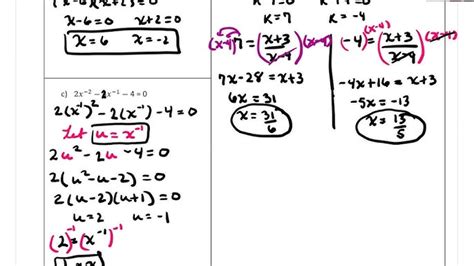 x-6=0 x+2=0
x=6 x=-2
c) 2x⁻²-2x⁻¹-4=0
2(x⁻¹)²-2(x⁻¹)-4=0
Let u=x⁻¹
2u²-2u-4=0
2(u²-u-2)=0
2(u-2)(u+1)=0
u=2 u=-1
(2)⁻¹=(x⁻¹)⁻¹
K=7
(x-4)7=(x+3/x-4)(x-4)
7x-28=x+3
6x=31
x=31/6
K=-4
(x-4)(-4)=(x+3/x-4)(x-4)
-4x+16=x+3
-5x=-13
x=13/5